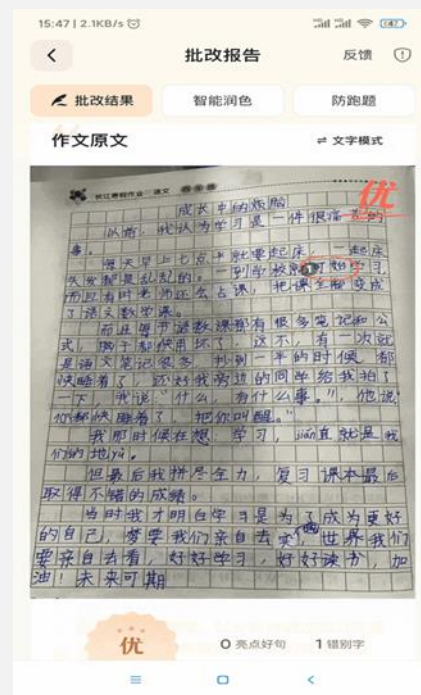 15:47 | 2.1KB/s
47
批改报告
反馈
批改结果
智能润色
防跑题
作文原文
文字模式
长江寒假作业 语文 四年级
优
成长中的烦脑
以前，我认为学习是一件很痛苦的
事。
每天早上七点半就要起床，一起床
头发都是乱乱的。一到学校就开始学习，
而且有时老师还么占课，把课全都变成
了语文数学课。
而且每节语数课都有很多笔记和公
式，脑子都快用坏了。这不，有一次就
是语文笔记很多，抄到一半的时候，都
快睡着了，还好我旁边的同学给我拍了
一下，我说"什么，有什么事。"，他说"
你都快睡着了，把你叫醒。"
我那时候在想，学习，jiǎn直就是我
们的地yù。
但最后我拼尽全力，复习课本最后
取得不错的成绩。
当时我才明白学习是为了成为更好
的自己，梦要我们亲自去实，世界我们
要亲自去看，好好学习，好好读书，加
油！未来可期
优
0 亮点好句
1 错别字